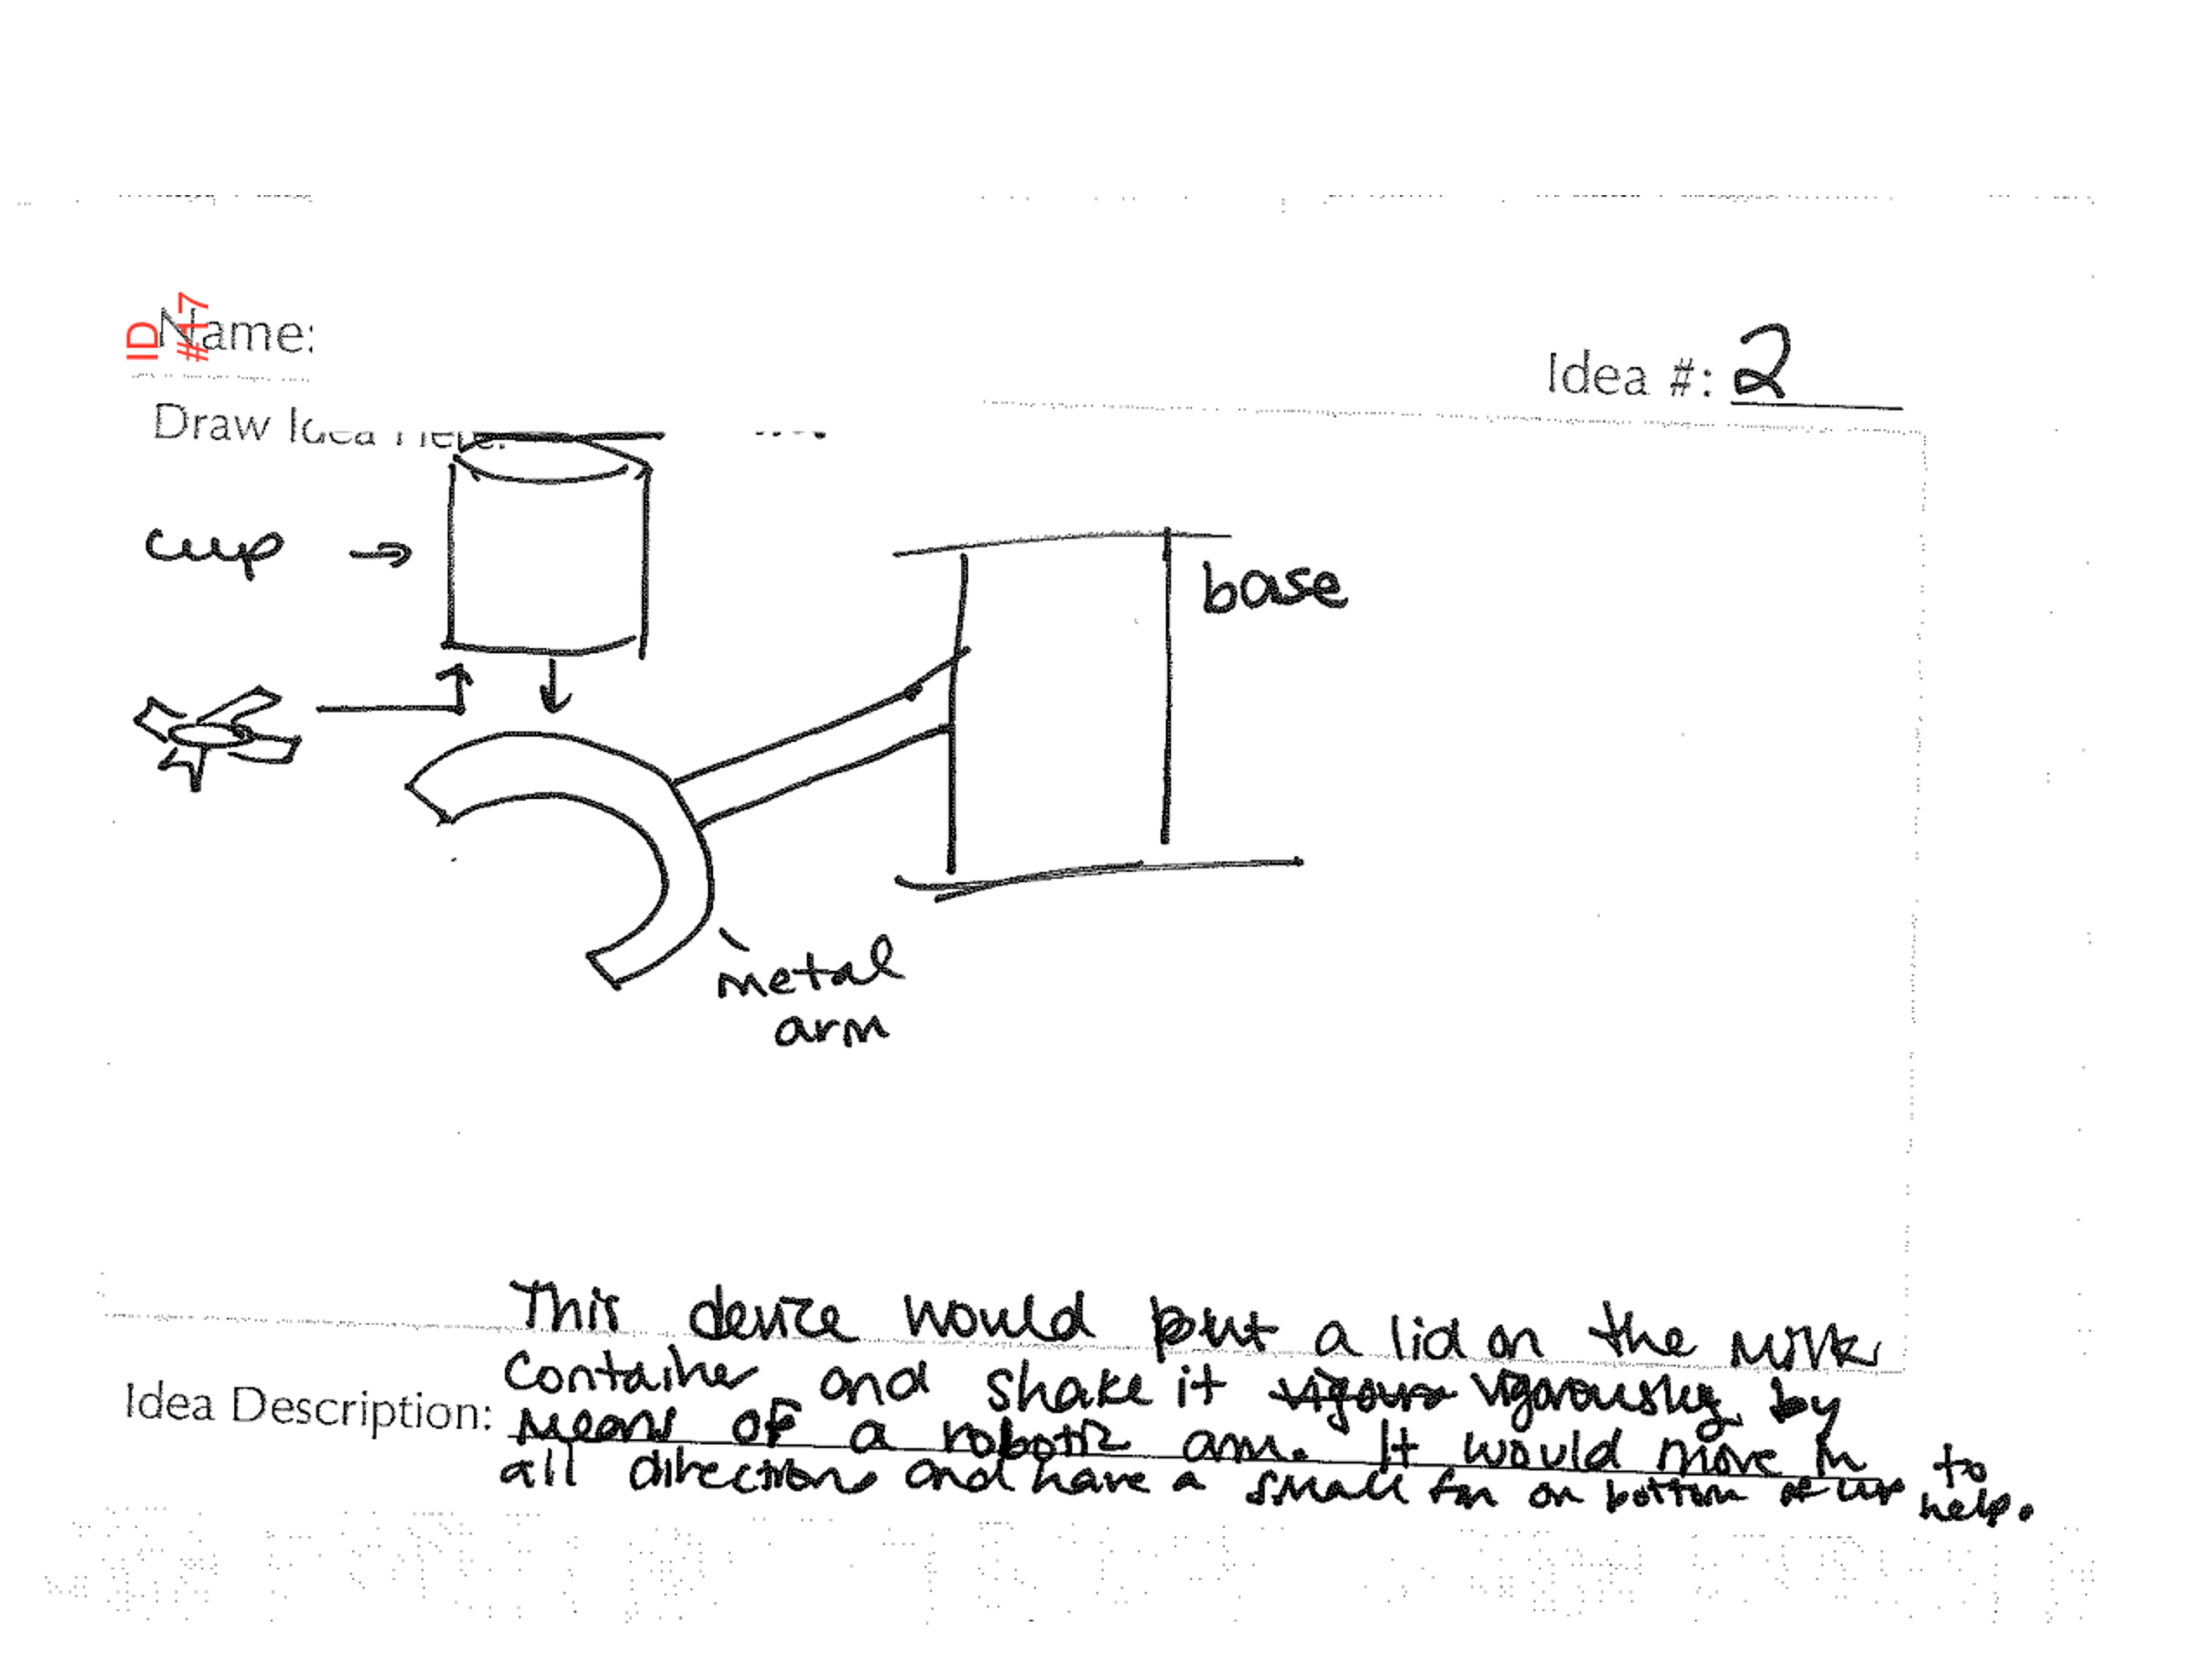 ID #17
Name:
Idea #: 2
Draw Idea Here:
cup
base
metal
arm
This device would put a lid on the milk
container and shake it vigorously by
Idea Description:
means of a robotic arm. It would move in
all directions and have a small fan on bottom of cup to
help.